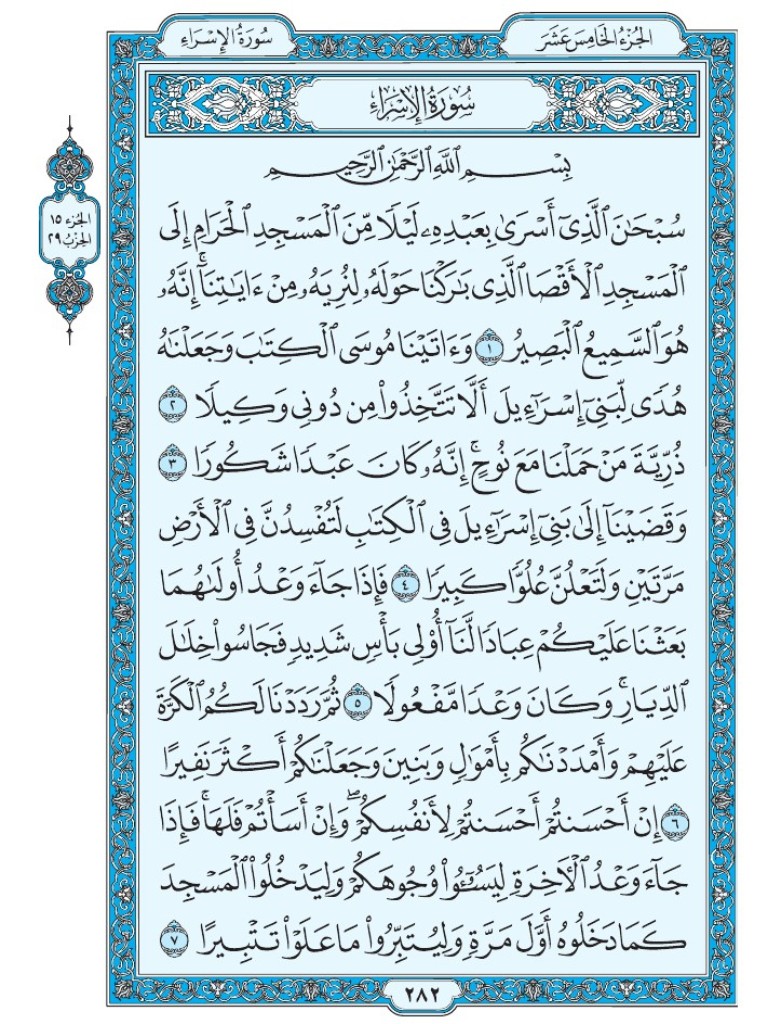 الجزء الخامس عشر
سورة الإسراء
سُورَةُ الإِسْرَاءِ
الجزء ١٥
الحزب ٢٩
بِسْمِ ٱللَّهِ ٱلرَّحْمَٰنِ ٱلرَّحِيمِ
سُبْحَٰنَ ٱلَّذِىٓ أَسْرَىٰ بِعَبْدِهِۦ لَيْلًا مِّنَ ٱلْمَسْجِدِ ٱلْحَرَامِ إِلَى
ٱلْمَسْجِدِ ٱلْأَقْصَا ٱلَّذِى بَٰرَكْنَا حَوْلَهُۥ لِنُرِيَهُۥ مِنْ ءَايَٰتِنَآ ۚ إِنَّهُۥ
هُوَ ٱلسَّمِيعُ ٱلْبَصِيرُ ١ وَءَاتَيْنَا مُوسَى ٱلْكِتَٰبَ وَجَعَلْنَٰهُ
هُدًى لِّبَنِىٓ إِسْرَٰٓءِيلَ أَلَّا تَتَّخِذُوا۟ مِن دُونِى وَكِيلًا ٢
ذُرِّيَّةَ مَنْ حَمَلْنَا مَعَ نُوحٍ ۚ إِنَّهُۥ كَانَ عَبْدًا شَكُورًا ٣
وَقَضَيْنَآ إِلَىٰ بَنِىٓ إِسْرَٰٓءِيلَ فِى ٱلْكِتَٰبِ لَتُفْسِدُنَّ فِى ٱلْأَرْضِ
مَرَّتَيْنِ وَلَتَعْلُنَّ عُلُوًّا كَبِيرًا ٤ فَإِذَا جَآءَ وَعْدُ أُولَىٰهُمَا
بَعَثْنَا عَلَيْكُمْ عِبَادًا لَّنَآ أُو۟لِى بَأْسٍ شَدِيدٍ فَجَاسُوا۟ خِلَٰلَ
ٱلدِّيَارِ ۚ وَكَانَ وَعْدًا مَّفْعُولًا ٥ ثُمَّ رَدَدْنَا لَكُمُ ٱلْكَرَّةَ
عَلَيْهِمْ وَأَمْدَدْنَٰكُم بِأَمْوَٰلٍ وَبَنِينَ وَجَعَلْنَٰكُمْ أَكْثَرَ نَفِيرًا
٦ إِنْ أَحْسَنتُمْ أَحْسَنتُمْ لِأَنفُسِكُمْ ۖ وَإِنْ أَسَأْتُمْ فَلَهَا ۚ فَإِذَا
جَآءَ وَعْدُ ٱلْءَاخِرَةِ لِيَسُۥٓـُٔوا۟ وُجُوهَكُمْ وَلِيَدْخُلُوا۟ ٱلْمَسْجِدَ
كَمَا دَخَلُوهُ أَوَّلَ مَرَّةٍ وَلِيُتَبِّرُوا۟ مَا عَلَوْا۟ تَتْبِيرًا ٧
٢٨٢